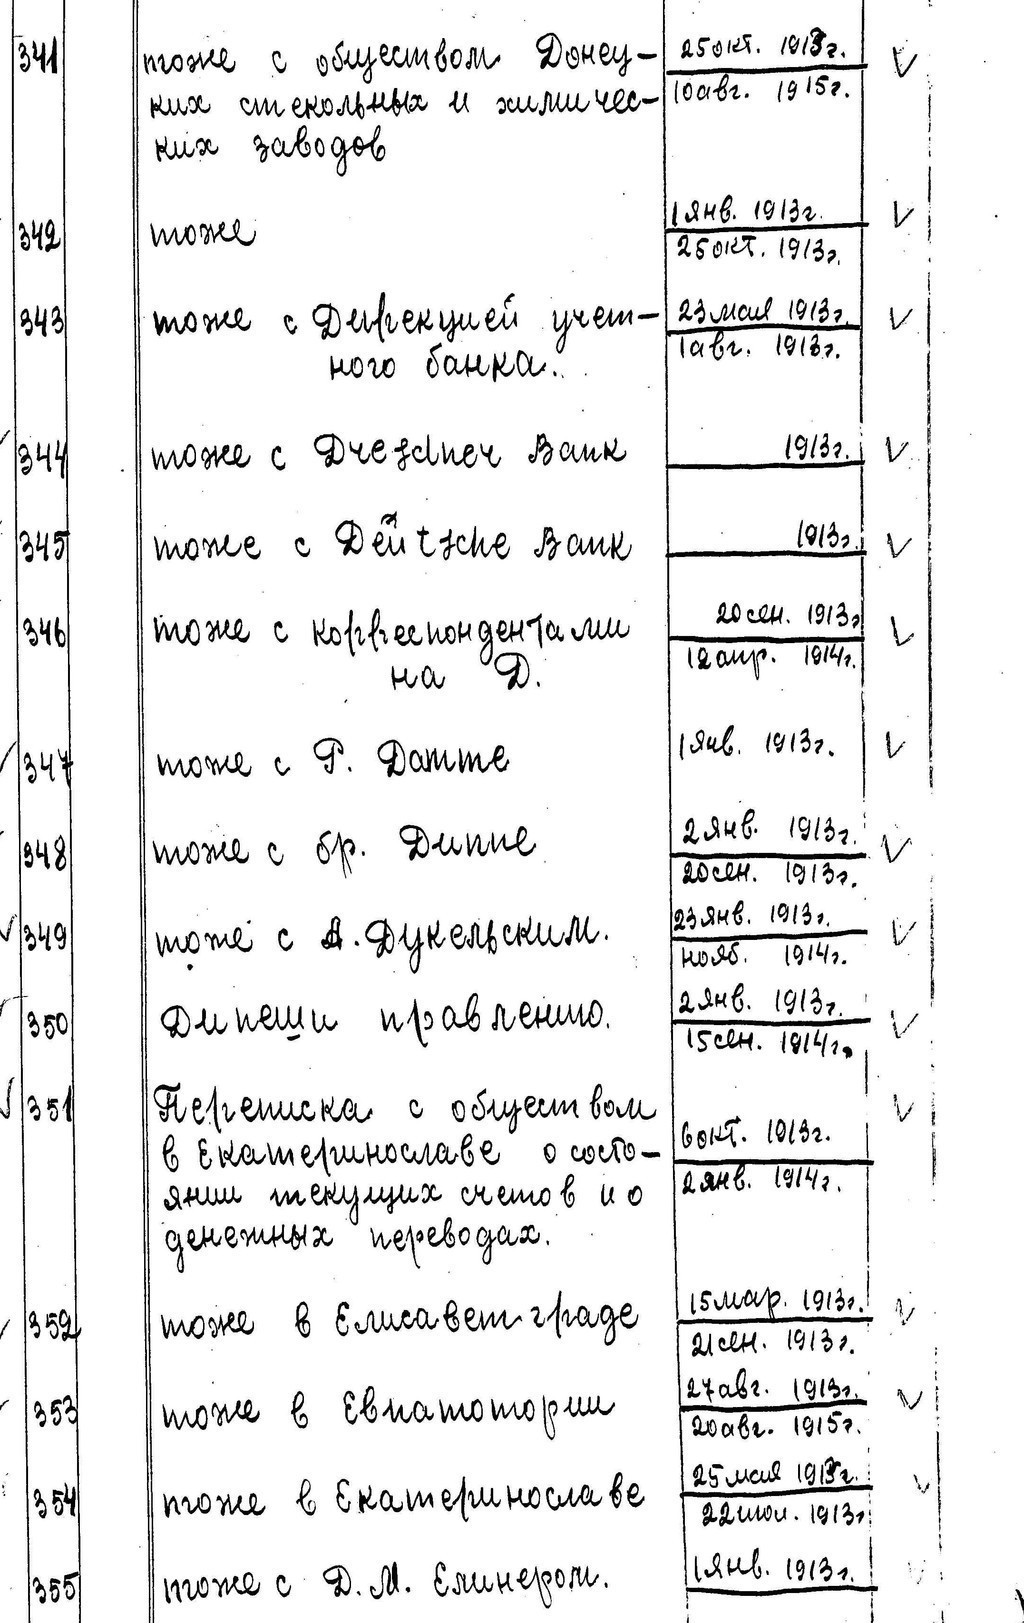 341 тоже с обществом Донец- 25 окт. 1913г.
ких стекольных и химичес- 10 авг. 1915г.
ких заводов
342 тоже 1 янв. 1913г.
25 окт. 1913г.
343 тоже с Дирекцией учет- 23 мая 1913г.
ного банка. 1 авг. 1913г.
344 тоже с Dresdner Bank 1913г.
345 тоже с Deutsche Bank 1913г.
346 тоже с корреспондентами 20 сен. 1913г
на Д. 12 апр. 1914г.
347 тоже с Г. Датте 1 янв. 1913г.
348 тоже с бр. Диппе 2 янв. 1913г.
20 сен. 1913г.
349 тоже с А. Дукельским. 23 янв. 1913г.
нояб. 1914г.
350 Дипеши правлению. 2 янв. 1913г.
15 сен. 1914г.
351 Переписка с обществом
в Екатеринославе о состо- 6 окт. 1913г.
янии текущих счетов и о 2 янв. 1914г.
денежных переводах.
352 тоже в Елисаветграде 15 мар. 1913г.
21 сен. 1913г.
353 тоже в Евпатотории 27 авг. 1913г.
20 авг. 1915г.
354 тоже в Екатеринославе 25 мая 1913г.
22 июл. 1913г
355 тоже с Д.М. Елинером. 1 янв. 1913г.